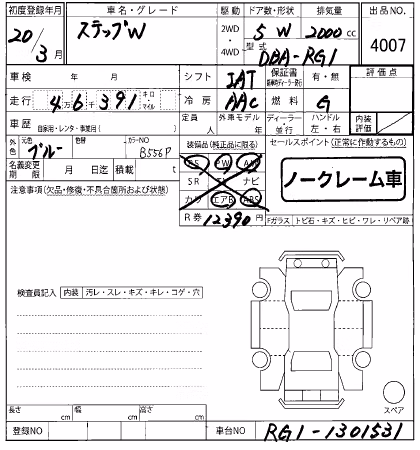 初度登録年月 車名・グレード 駆動 ドア数・形状 排気量 出品NO
20年 3月 ステップW 2WD・4WD 5 W 2000cc 4007
型式 DBA-RG1
車検 年 月 シフト IAT 保証書 有・無 評価点
走行 4万6千391 キロ マイル 冷房 AAC 燃料 G
車歴 自家用・レンタ・事業用( ) 定員 人 外車モデル 年 ディーラー・並行 ハンドル 左・右 内装評価
外色 元色 ブルー 色替 カラーNO B556P 装備品(純正品に限る) セールスポイント(正常に作動するもの)
PS PW
名義変更期限 月 日迄 積載 t SR ナビ ノークレーム車
注意事項(欠品・修復・不具合箇所および状態) カワ エアB ABS
R券 12390円 Fガラス トビ石・キズ・ヒビ・ワレ・リペア跡
検査員記入 内装 汚レ・スレ・キズ・キレ・コゲ・穴
スペア
長さ cm 幅 cm 高さ cm
登録NO 車台NO RG1-1301531